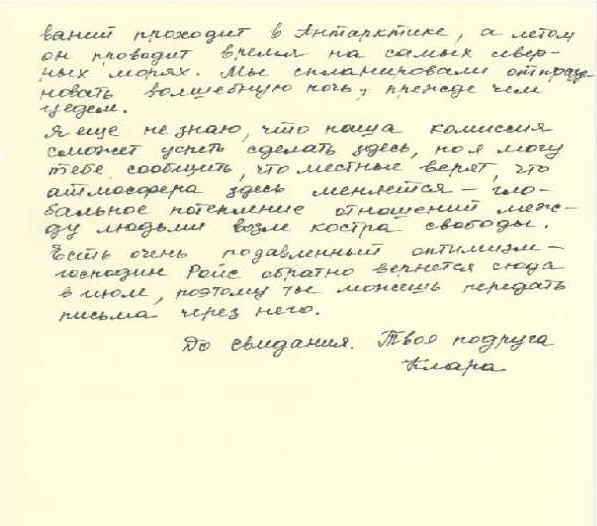 ваний проходит в Антарктике, а летом
он проводит время на самых север-
ных морях. Мы спланировали отпразд-
новать волшебную ночь, прежде чем
уедем.
Я еще не знаю, что наша комиссия
сможет успеть сделать здесь, но я могу
тебе сообщить, что местные верят, что
атмосфера здесь меняется – гло-
бальное потепление отношений меж-
ду людьми возле костра свободы.
Есть очень подавленный оптимизм –
господин Ройс обратно вернется сюда
в июле, поэтому ты можешь передать
письма через него.
До свидания. Твоя подруга
Клара